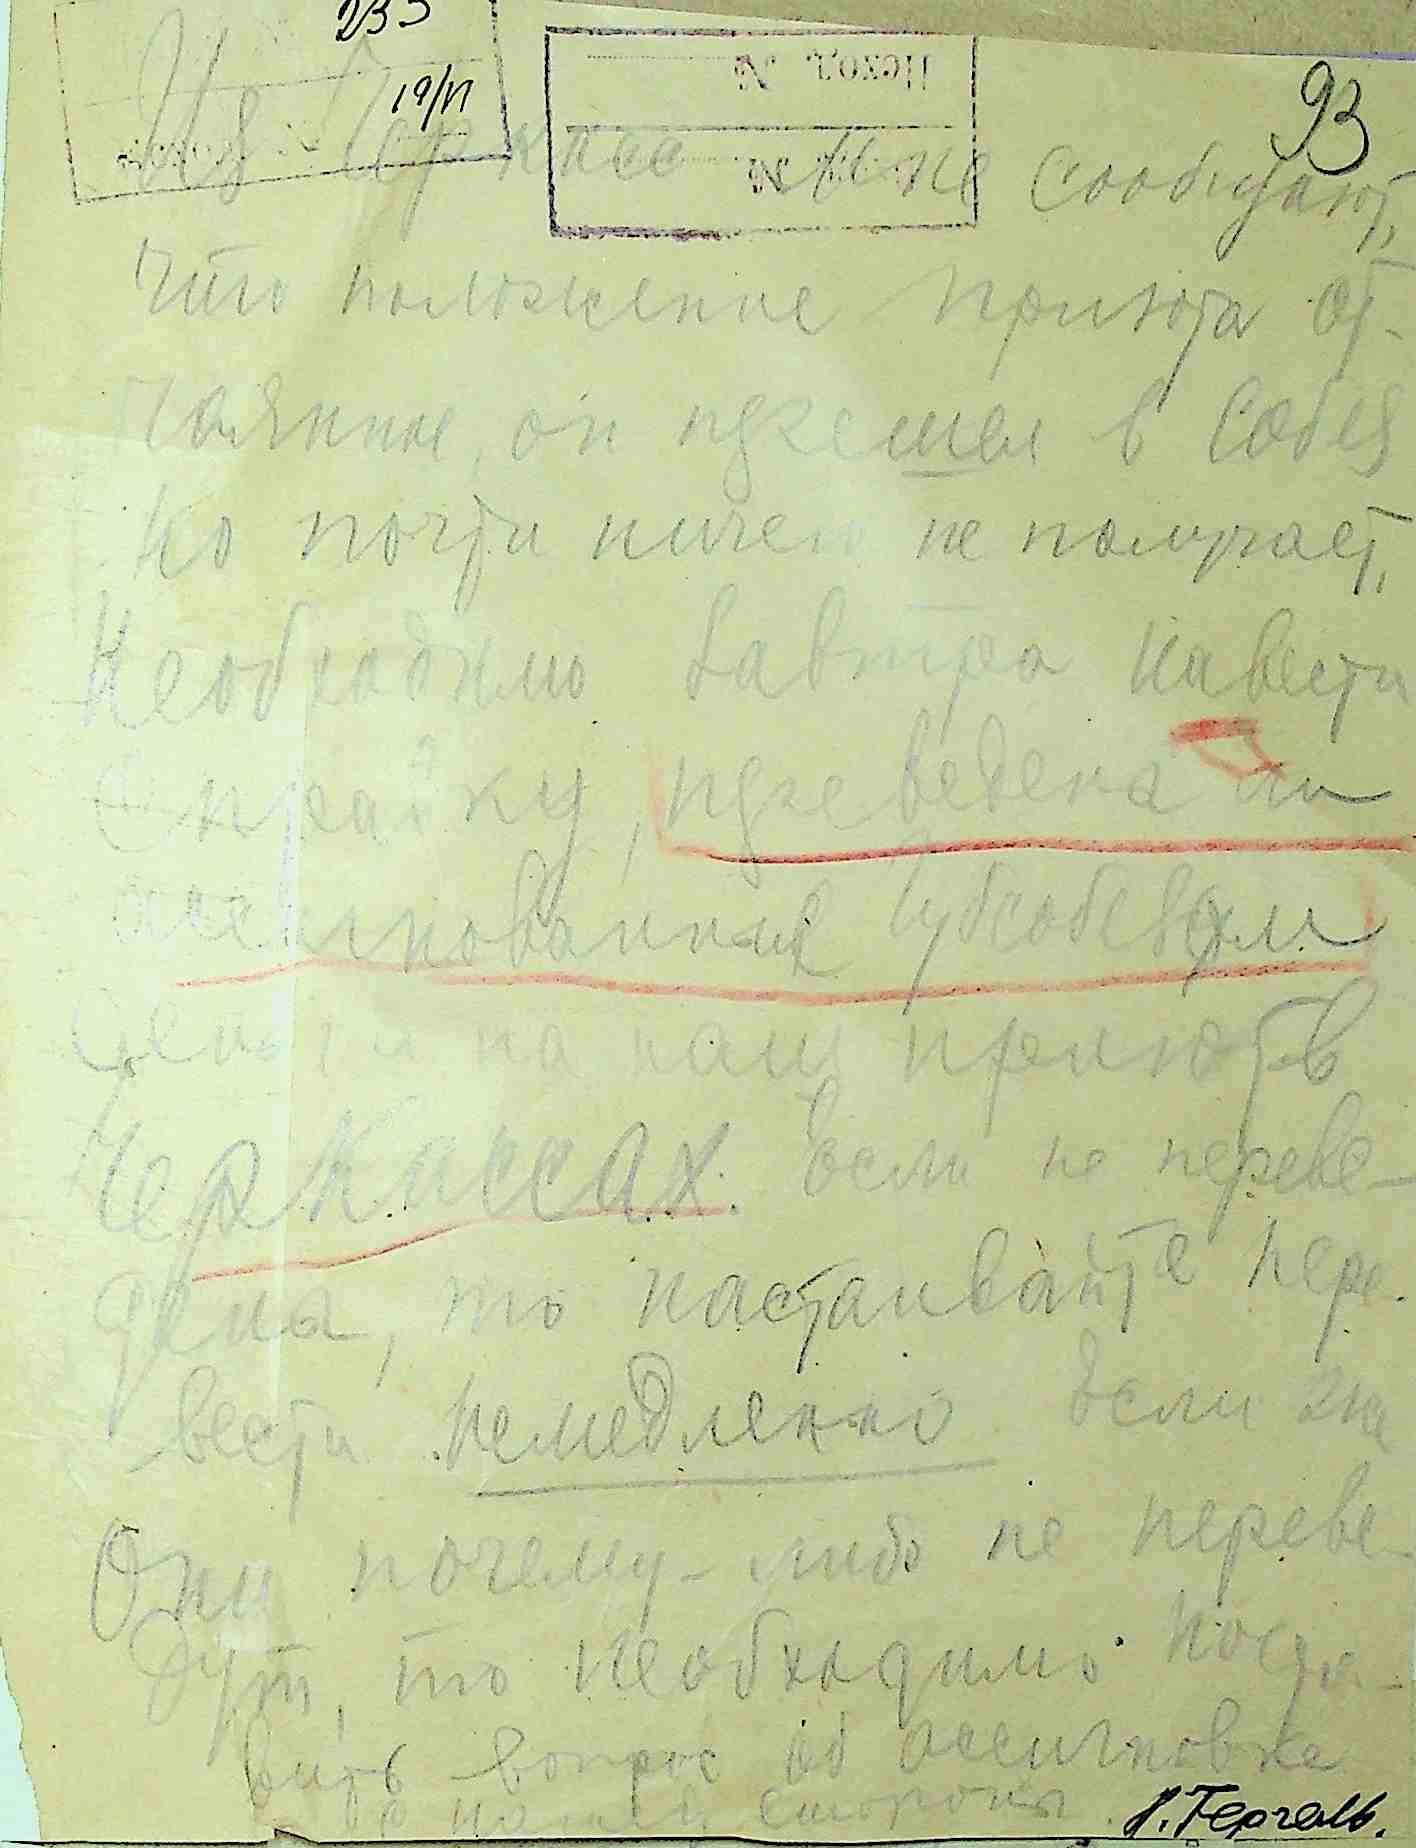 233
19/VI
Исход. №
№
93
Из Черкасс мне сообщают,
что положение приюта от-
чаянное, он перешел в Собез
но почти ничего не получает,
Необходимо завтра навести
справку, переведена ли
ассигнованная Губсобезом
на наш приют в
Черкассах. Если не переве-
дена, то настаивайте пере-
вести немедленно. Если же
Они почему-либо не переве-
дут, то необходимо поста-
вить вопрос об ассигновке
с нашей стороны.
Гергель.